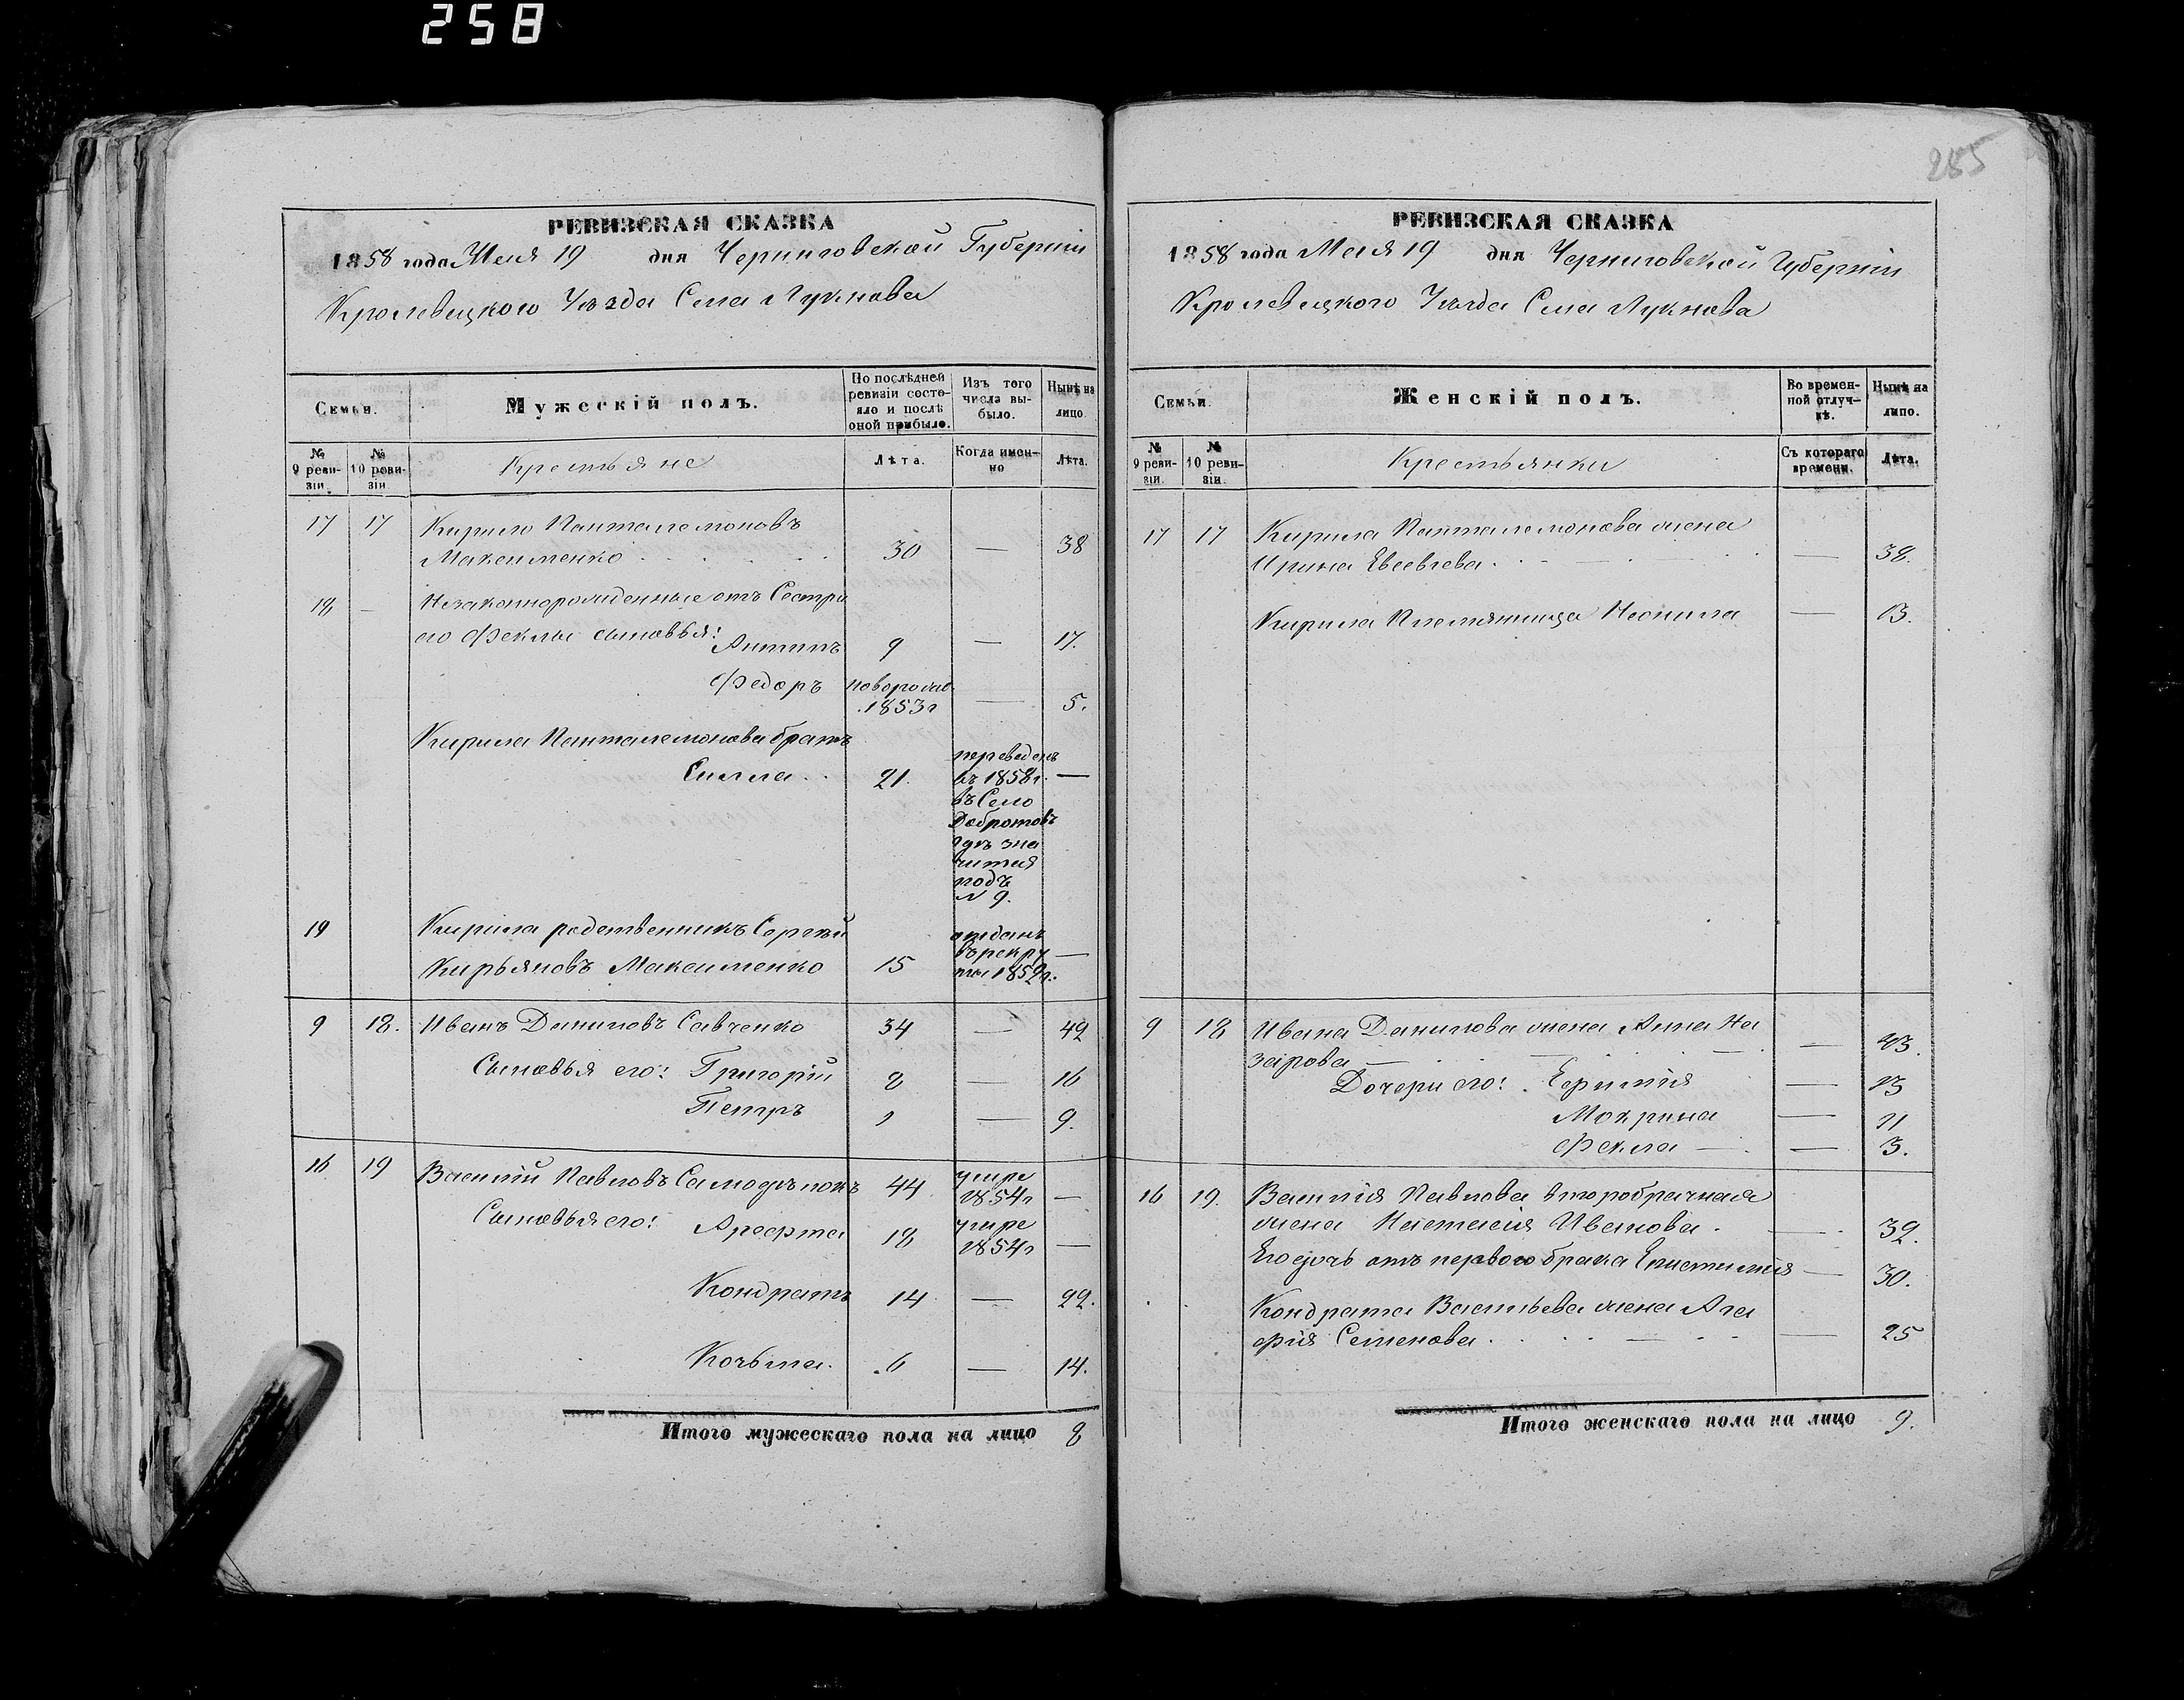 258
285
РЕВИЗСКАЯ СКАЗКА
1858 года Мая 19 дня Черниговской Губерніи
Кролевецкого Уѣзда Села Лукнова
Семьи.
Мужескій полъ.
По послѣдней ревизіи состояло и послѣ оной прибыло.
Изъ того числа выбыло.
Нынѣ на лицо.
№ 9 ревизіи.
№ 10 ревизіи.
Крестьяне
Лѣта.
Когда именно
Лѣта.
17 17 Кирило Панталемоновъ
Максименко 30 — 38
18 — Незаконнорожденные отъ Сестры
его Феклы сыновья: Антипъ 9 — 17.
Федоръ новорожд. 1853г — 5.
Кирила Панталемонова братъ
Силла 21. переведенъ
въ 1858г. —
въ Село
Добротовъ
гдѣ зна
чится
подъ
№ 9.
19 Кирила родственникъ Сергѣй отданъ
Кирьяновъ Максименко 15 въ рекру —
ты 1852г.
9 18. Иванъ Даниловъ Савченко 34 — 42
Сыновья его: Григорій 8 — 16
Петръ 1 — 9.
16 19 Василій Павловъ 44 умре
1854г —
Сыновья его: 18 умре
1854г —
Кондратъ 14 — 22.
Козьма. 6 — 14.
Итого мужескаго пола на лицо 8
РЕВИЗСКАЯ СКАЗКА
1858 года Мая 19 дня Черниговской Губерніи
Кролевецкого Уѣзда Села Лукнова
Семьи.
Женскій полъ.
Во временной отлучкѣ.
Нынѣ на лицо.
№ 9 ревизіи.
№ 10 ревизіи.
Крестьянки
Съ котораго времени.
Лѣта.
17 17 Кирила Панталемонова жена
Ирина Евсевіева — 38.
Кирила Племянница Неонила — 13.
9 18 Ивана Данилова жена Анна На
зарова — 43.
Дочери его: — 13
Мокрина — 11
Фекла — 3.
16 19. Василія Павлова второбрачная
жена Настасія Иванова. — 39.
Его дочь отъ первого брака Епистимія — 30.
Кондрата Васильева жена Ага
фія Семенова — 25
Итого женскаго пола на лицо 9.